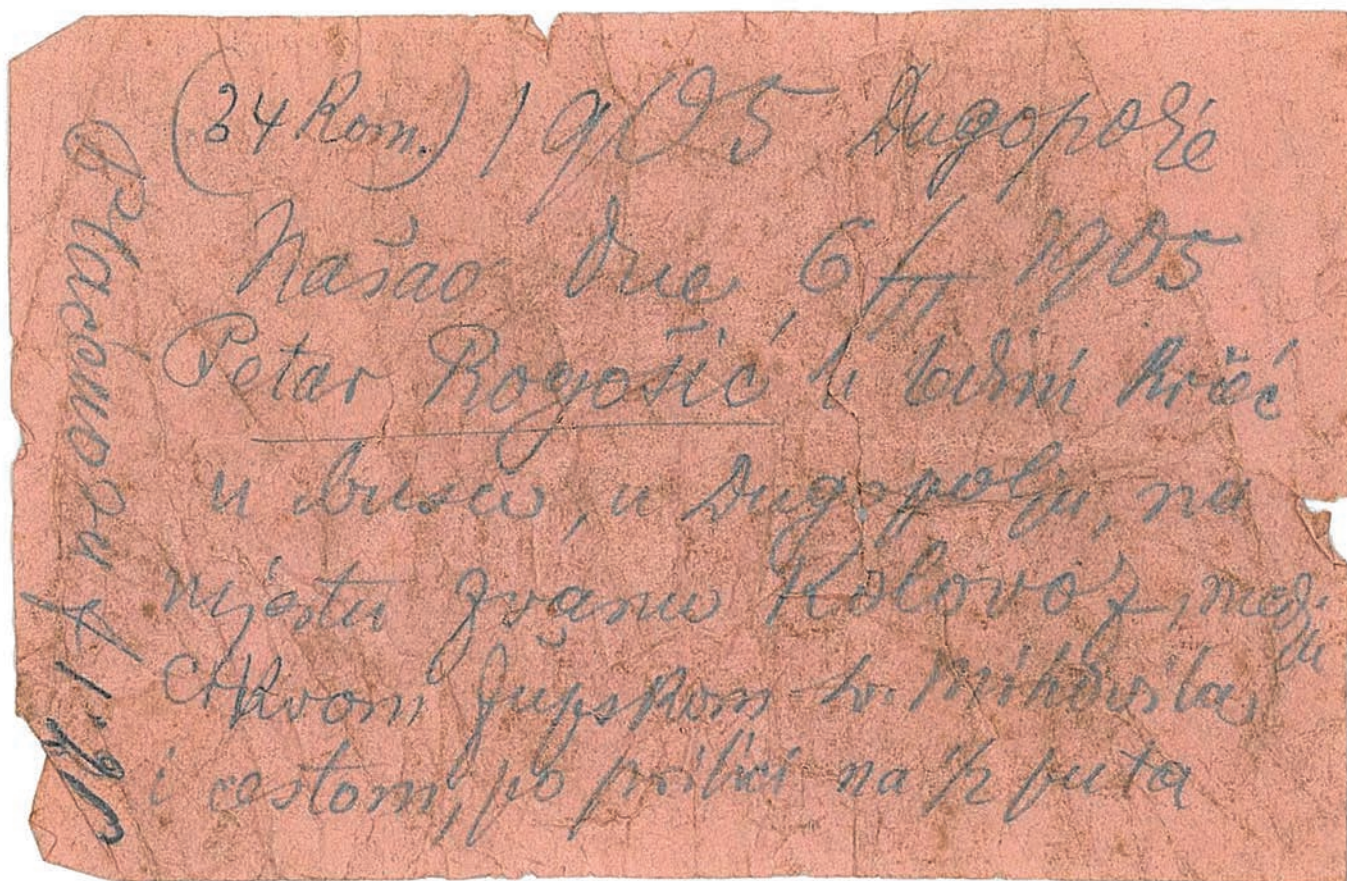 (34 kom.) 1905 Dugopolje
Našao dne 6/II 1905
Petar Rogošić
u busu, u Dugopolju, na
mjestu zvanu Kolovoz, među
crkvom župskom sv. Mihovila,
i cestom, po prilici na ½ puta
Plaćano 24 f